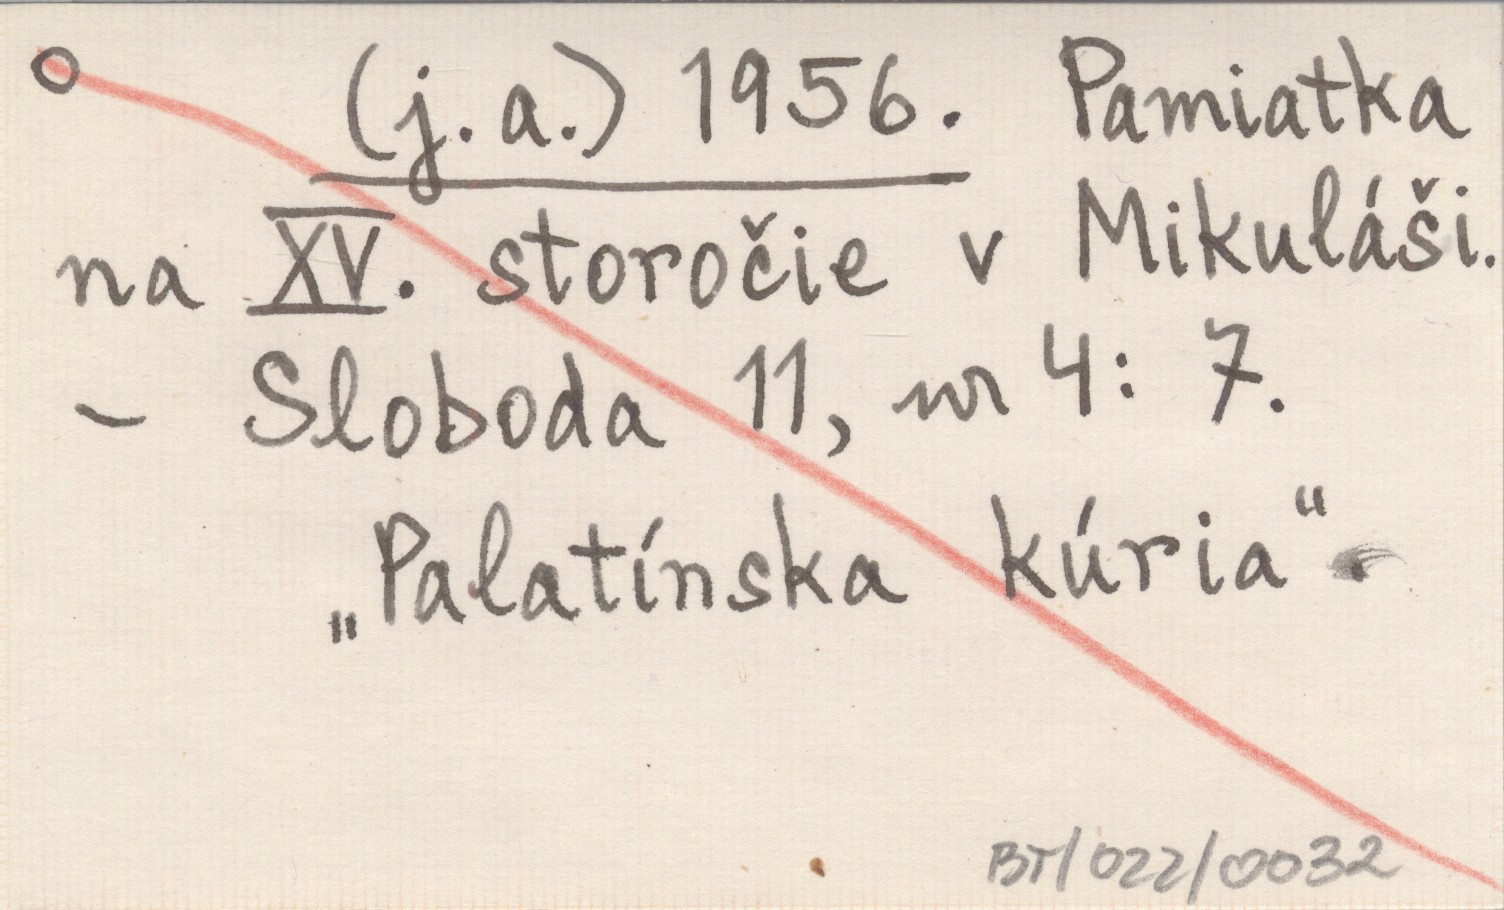 (j. a.) 1956. Pamiatka
na XV. storočie v Mikuláši.
- Sloboda 11, nr 4: 7.
„Palatínska kúria“.
BT/022/0032